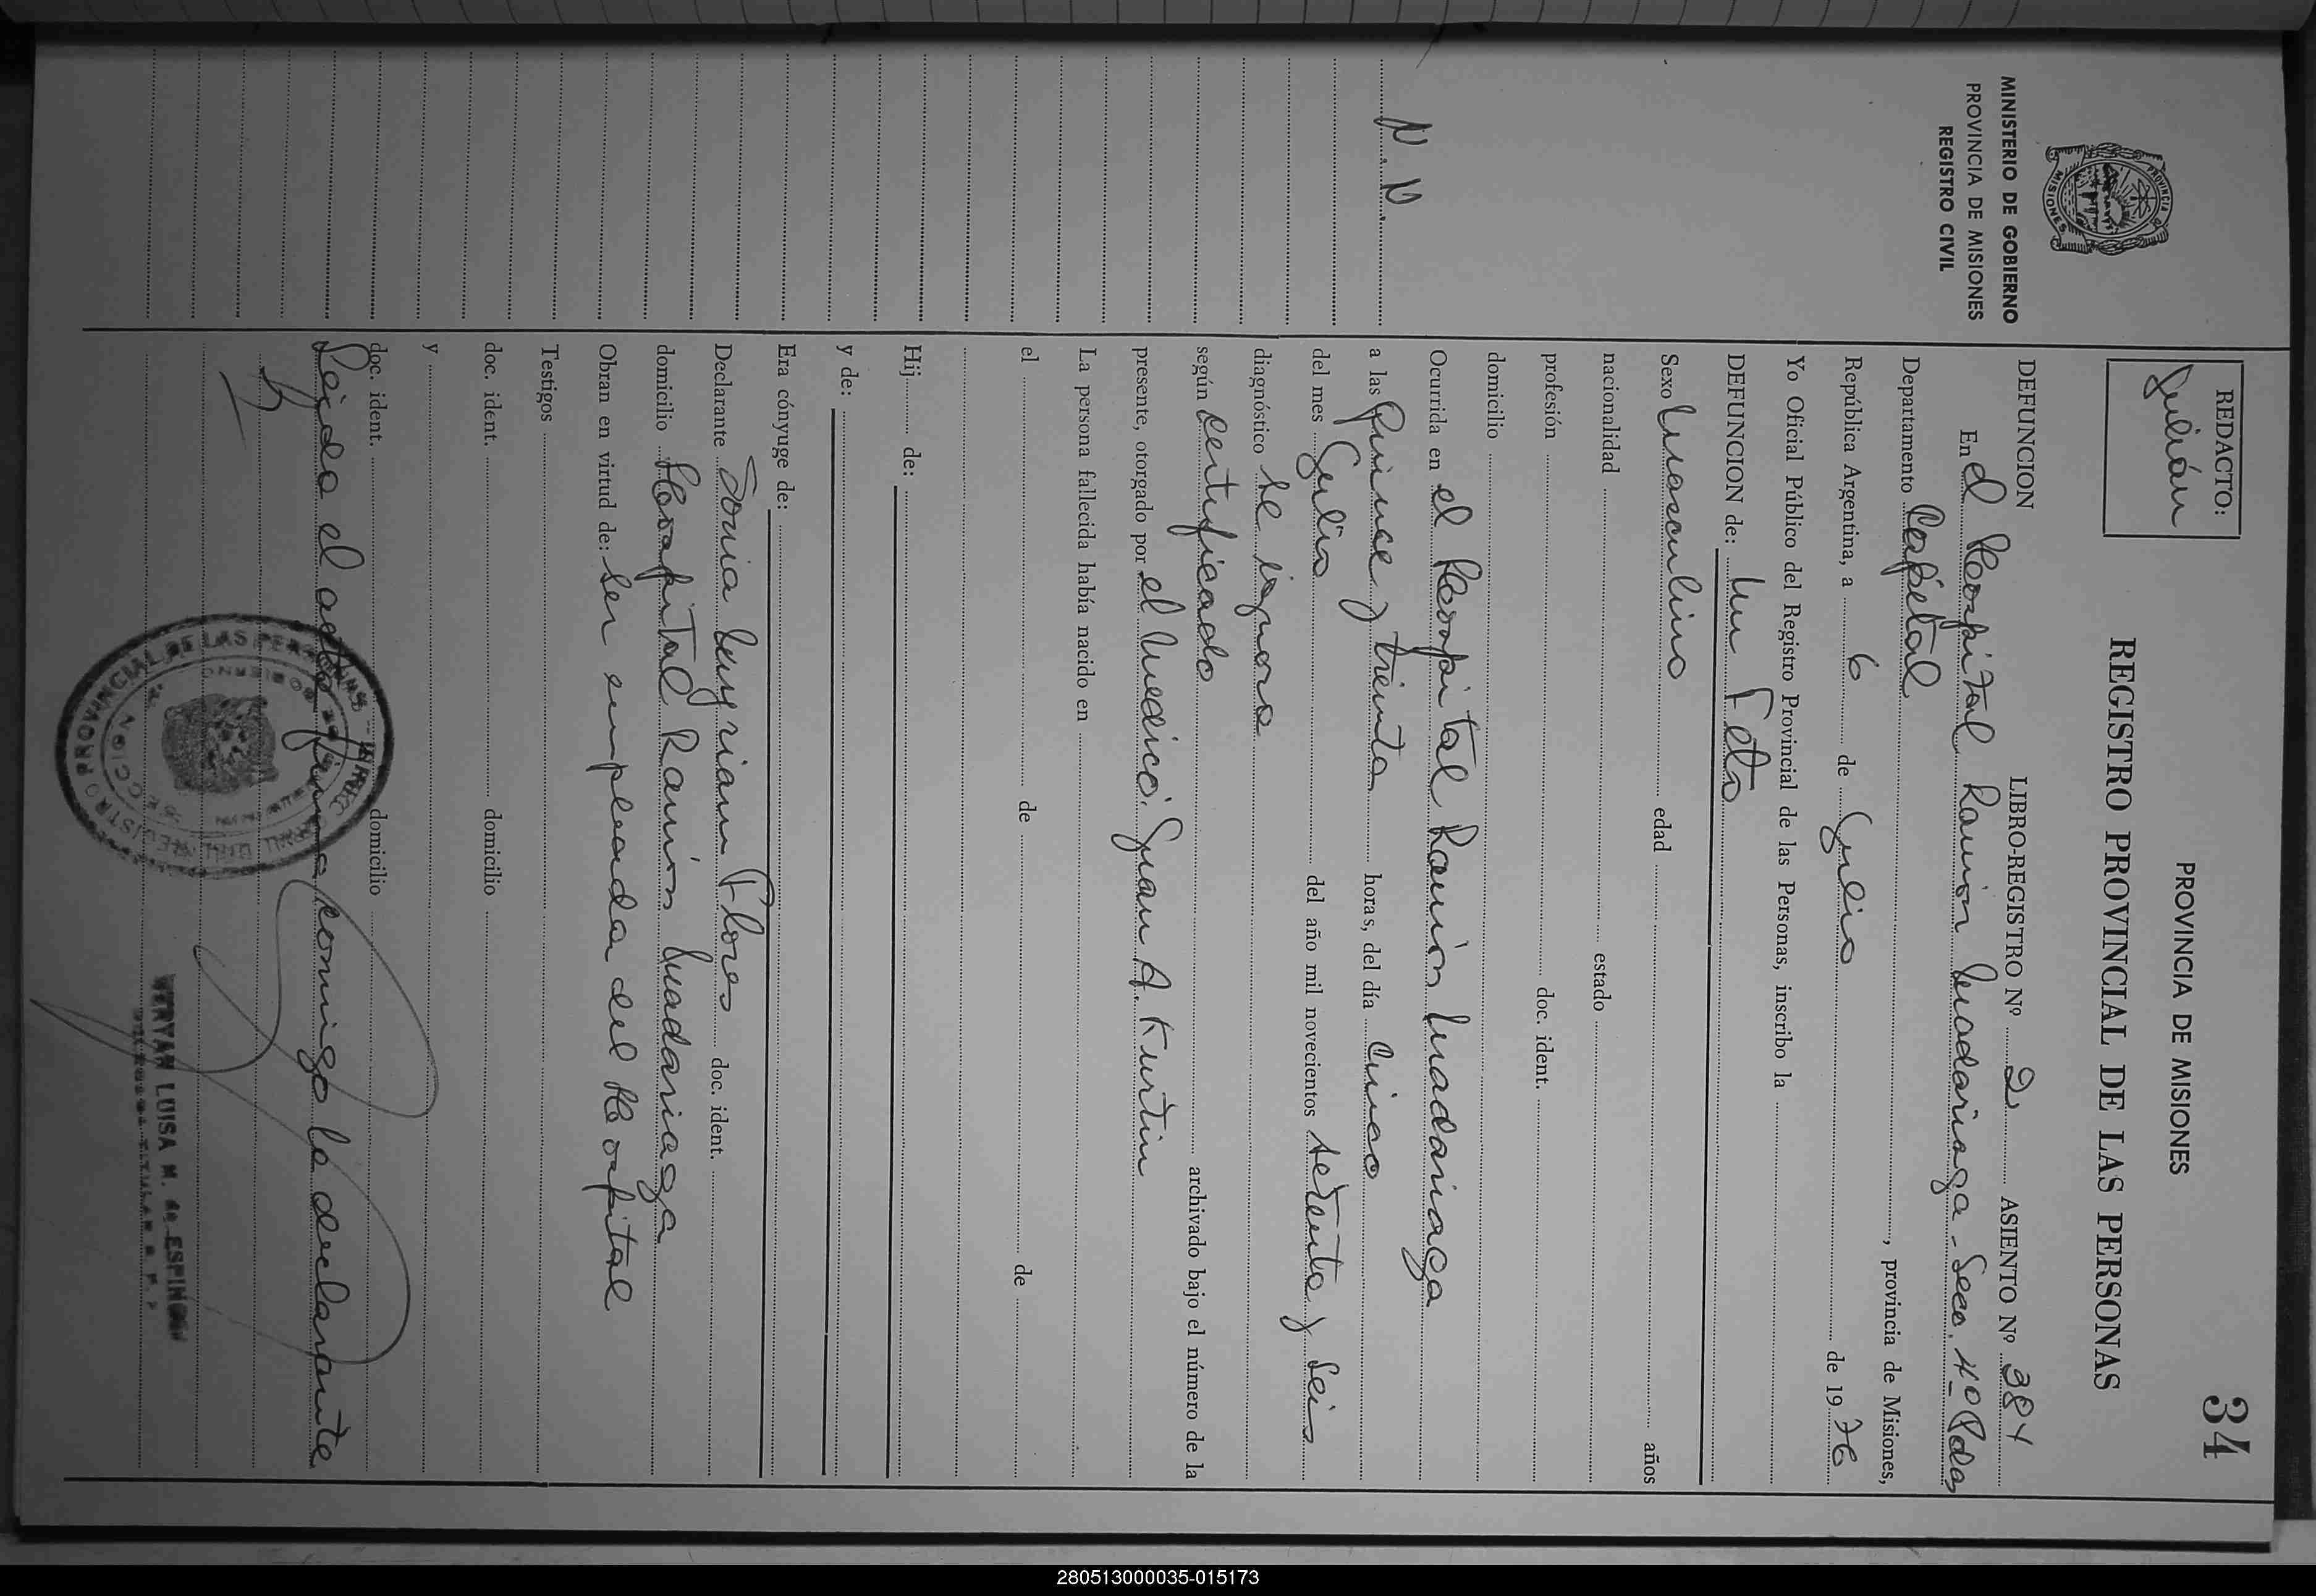 34
PROVINCIA DE MISIONES
REGISTRO PROVINCIAL DE LAS PERSONAS
REDACTO:
Julián
MINISTERIO DE GOBIERNO
PROVINCIA DE MISIONES
REGISTRO CIVIL
PROVINCIA
MISIONES
N. N.
DEFUNCION LIBRO-REGISTRO Nº 2 ASIENTO Nº 384
En el Hospital Ramón Madariaga - Secc. 4º Pdas
Departamento Capital, provincia de Misiones,
República Argentina, a 6 de Julio de 1976
Yo Oficial Público del Registro Provincial de las Personas, inscribo la
DEFUNCION de: Un Feto
Sexo Masculino edad años
nacionalidad estado
profesión doc. ident.
domicilio
Ocurrida en el Hospital Ramón Madariaga
a las Quince y treinta horas, del día Cinco
del mes Julio del año mil novecientos setenta y seis
diagnóstico se ignora
según certificado archivado bajo el número de la
presente, otorgado por el Medico. Juan A. Kurtin
La persona fallecida había nacido en
el de de
Hij de:
y de:
Era cónyuge de:
Declarante Sonia Myriam Flores doc. ident.
domicilio Hospital Ramón Madariaga
Obran en virtud de: ser empleada del Hospital
Testigos
doc. ident. domicilio
y
doc. ident. domicilio
Leída el acta firma conmigo la declarante
REGISTRO PROVINCIAL DE LAS PERSONAS
MIRYAM LUISA M. de ESPINOSA